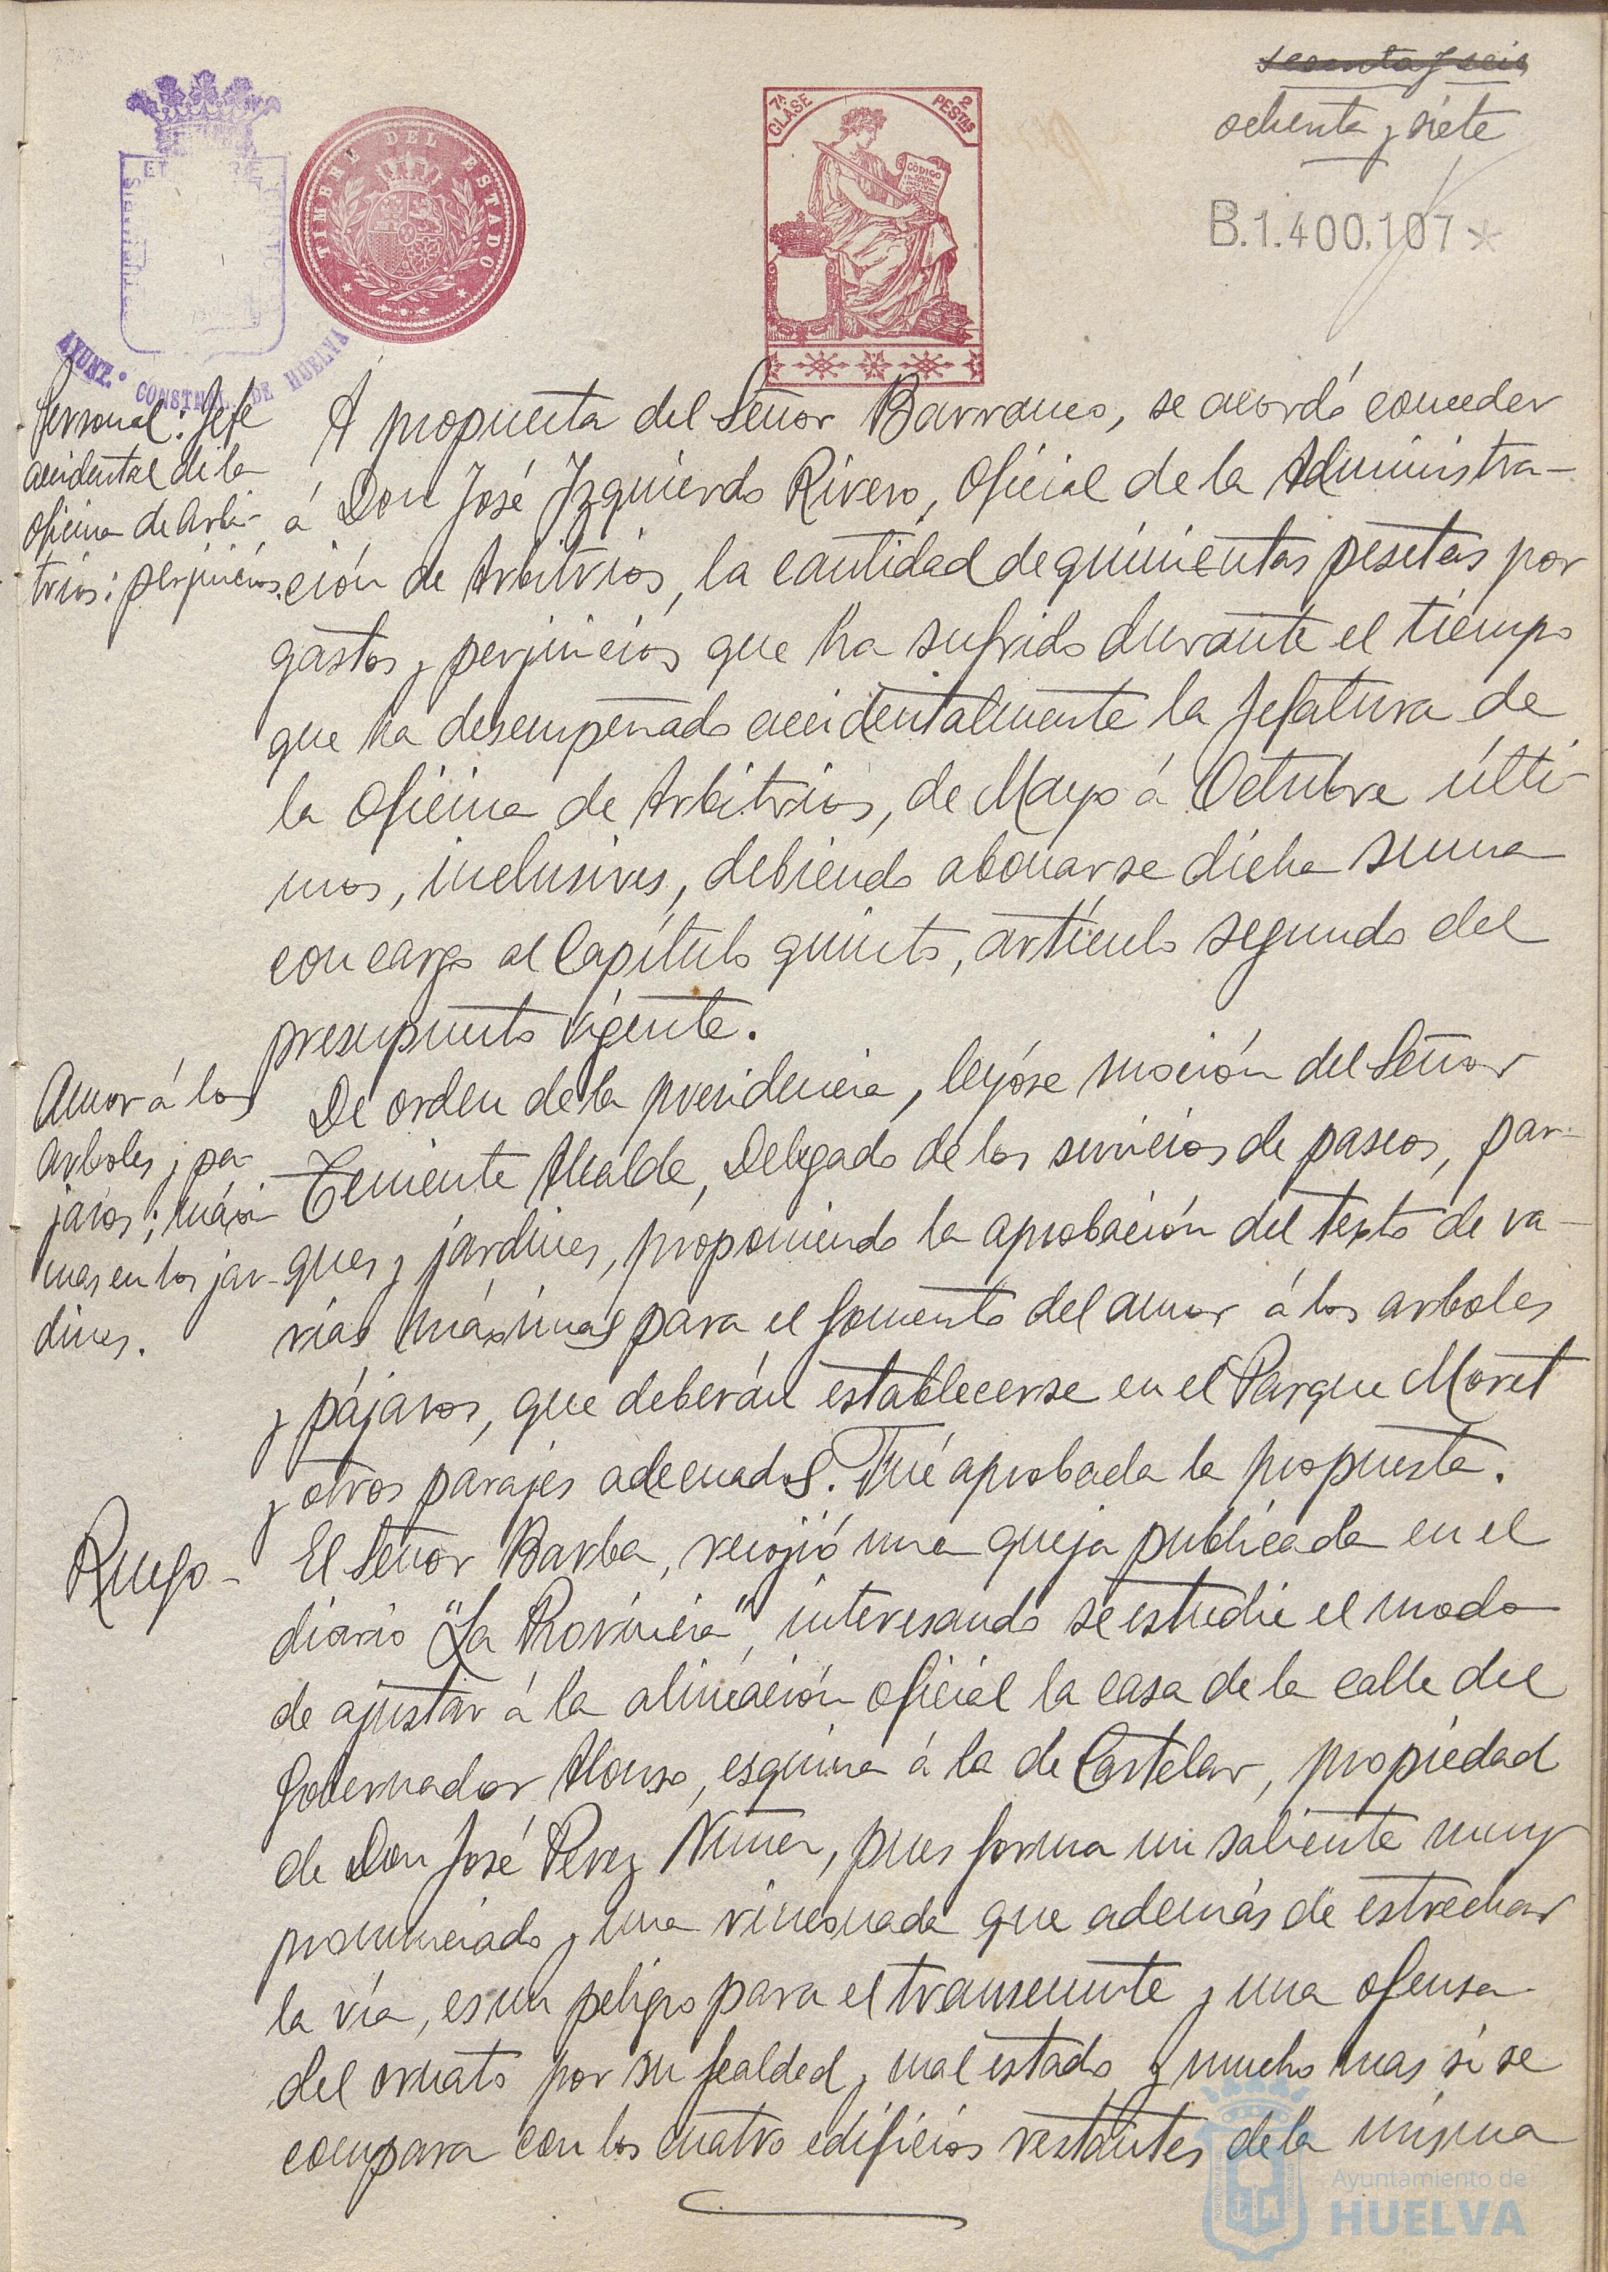 sesenta y seis
ochenta y siete
B.1.400.107 *
7ª CLASE
2 PESTAS
CÓDIGO
TIMBRE DEL ESTADO
AYUNT.º CONSTNAL. DE HUELVA
Personal: Jefe
accidental de la
oficina de Arbi-
trios: perjuicios.
A propuesta del Señor Barranco, se acordó conceder
á Don José Izquierdo Rivero, Oficial de la Administra-
ción de Arbitrios, la cantidad de quinientas pesetas por
gastos y perjuicios que ha sufrido durante el tiempo
que ha desempeñado accidentalmente la Jefatura de
la Oficina de Arbitrios, de Mayo á Octubre últi-
mos, inclusives, debiendo abonarse dicha suma
con cargo al Capítulo quinto, artículo segundo del
presupuesto vigente.
Amor á los
arboles y pa-
jaros; máxi-
mas en los jar-
dines.
De orden de la presidencia, leyóse moción del Señor
Teniente Alcalde, Delegado de los servicios de paseos, par-
ques y jardines, proponiendo la aprobación del texto de va-
rias máximas para el fomento del amor á los arboles
y pájaros, que deberán establecerse en el Parque Moret
y otros parajes adecuados. Fué aprobada la propuesta.
Ruego-
El Señor Barba, recojió una queja publicada en el
diario "La Provincia", interesando se estudie el modo
de ajustar á la alineación oficial la casa de la calle del
Gobernador Alonso, esquina á la de Castelar, propiedad
de Don José Perez Nuñez, pues forma un saliente muy
pronunciado y una rinconada que además de estrechar
la vía, es un peligro para el transeunte y una ofensa
del ornato por su fealdad y mal estado y mucho mas si se
compara con los cuatro edificios restantes de la misma
Ayuntamiento de
HUELVA